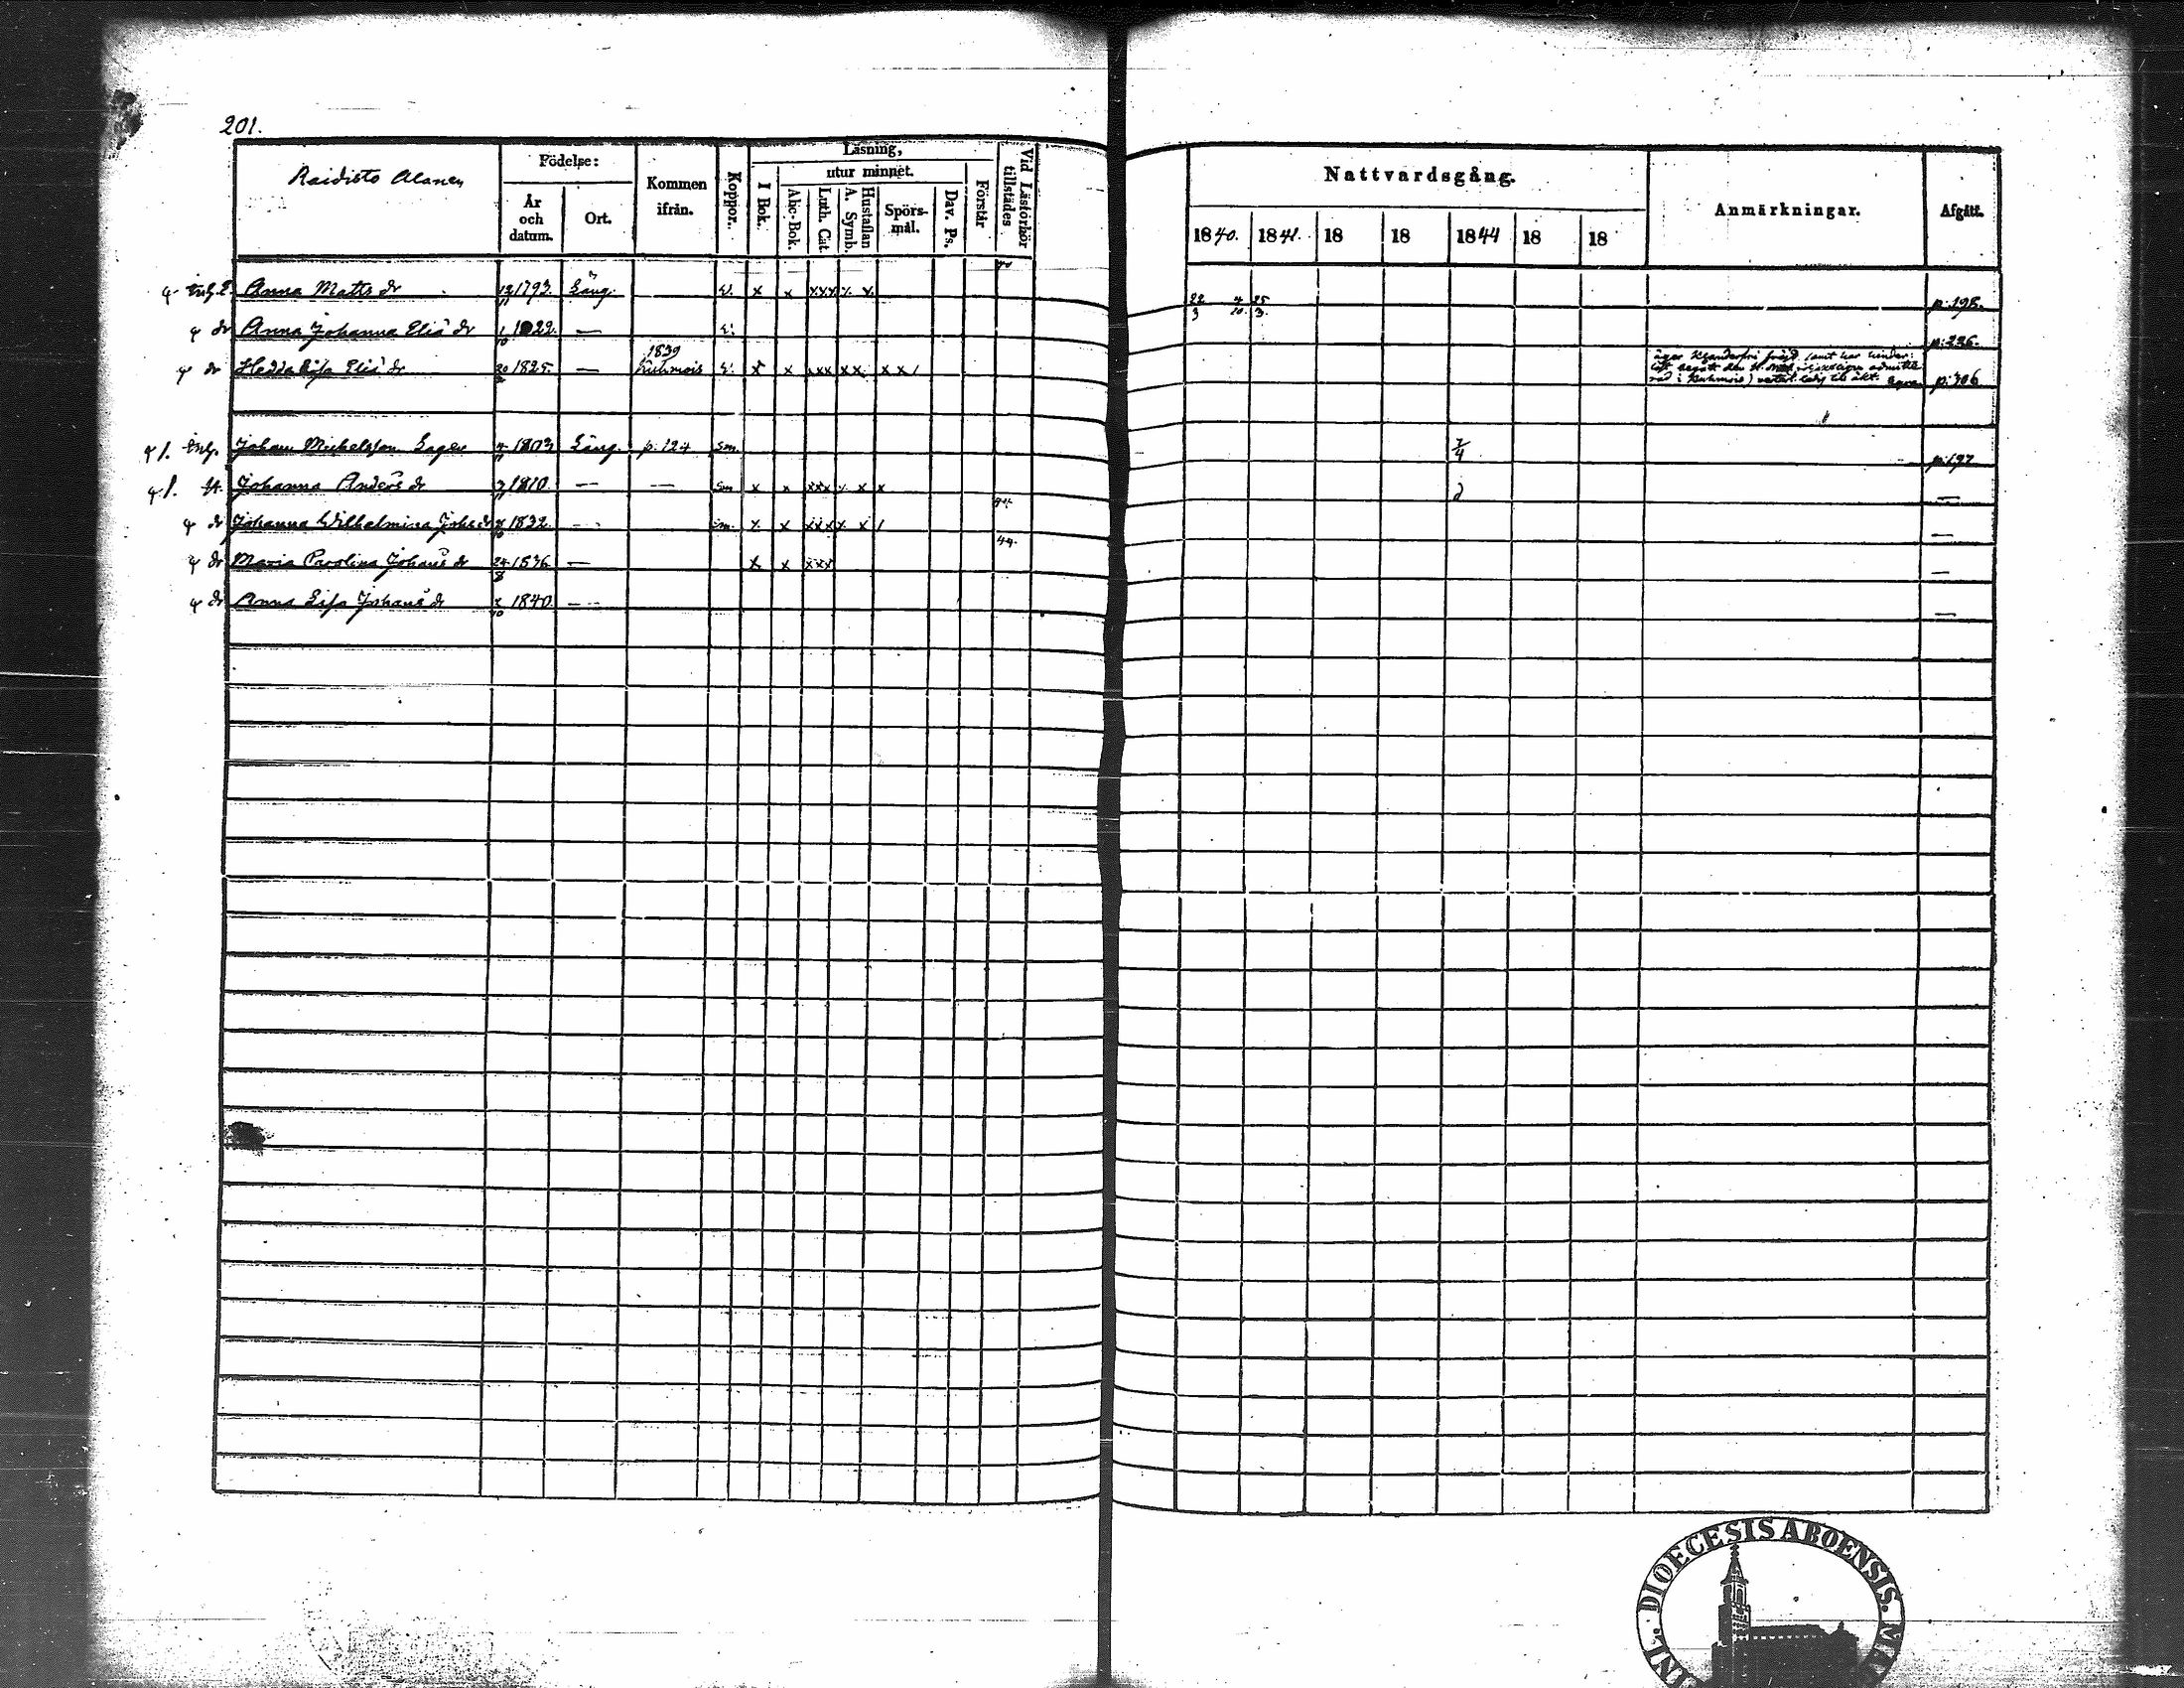 201.
Raidisto Alanen
Födelse:
År och datum.
Ort.
Kommen ifrån.
Koppor.
Läsning,
I Bok.
utur minnet.
Abc-Bok.
Luth. Cat.
A. Symb.
Hustaflan
Spörs-mål.
Dav. Ps.
Förstår
Vid Läsförhör tillstädes
Nattvardsgång.
1840. 1841. 18 18 1844 18 18
Anmärkningar.
Afgått.
Anna Matts dr 12/11 1793. Läng. v. x x xxx x x 22/3 4/10 25/3 p. 198.
dr Anna Johanna Eliä dr 1/10 1822. — v. p. 236.
dr Hedda Lisa Eliä dr 1825. — 1839 Kuhmois v. x x xxx xx xx/ p. 306
Johan Michelsson Lager 4/11 1803 Läng. p. 124 sm. 7/4 p. 197
Johanna Anders dr 1810. — — sm x x xxx x x x —
dr Johanna Wilhelmina Johs dr 1832. — sm. x x xxx x x / 44. —
dr Maria Carolina Johans dr 24/8 1836. — x x xxx 44. —
dr Anna Lisa Johans dr 1840. — —
DIOECESIS ABOENSIS.